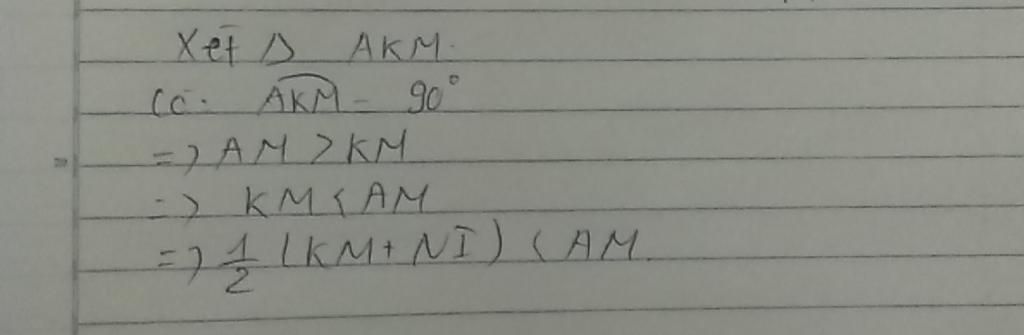 Xét Δ AKM.
Có: \widehat{AKM} = 90°
=> AM > KM
=> KM < AM
=> \frac{1}{2} (KM + NI) < AM.